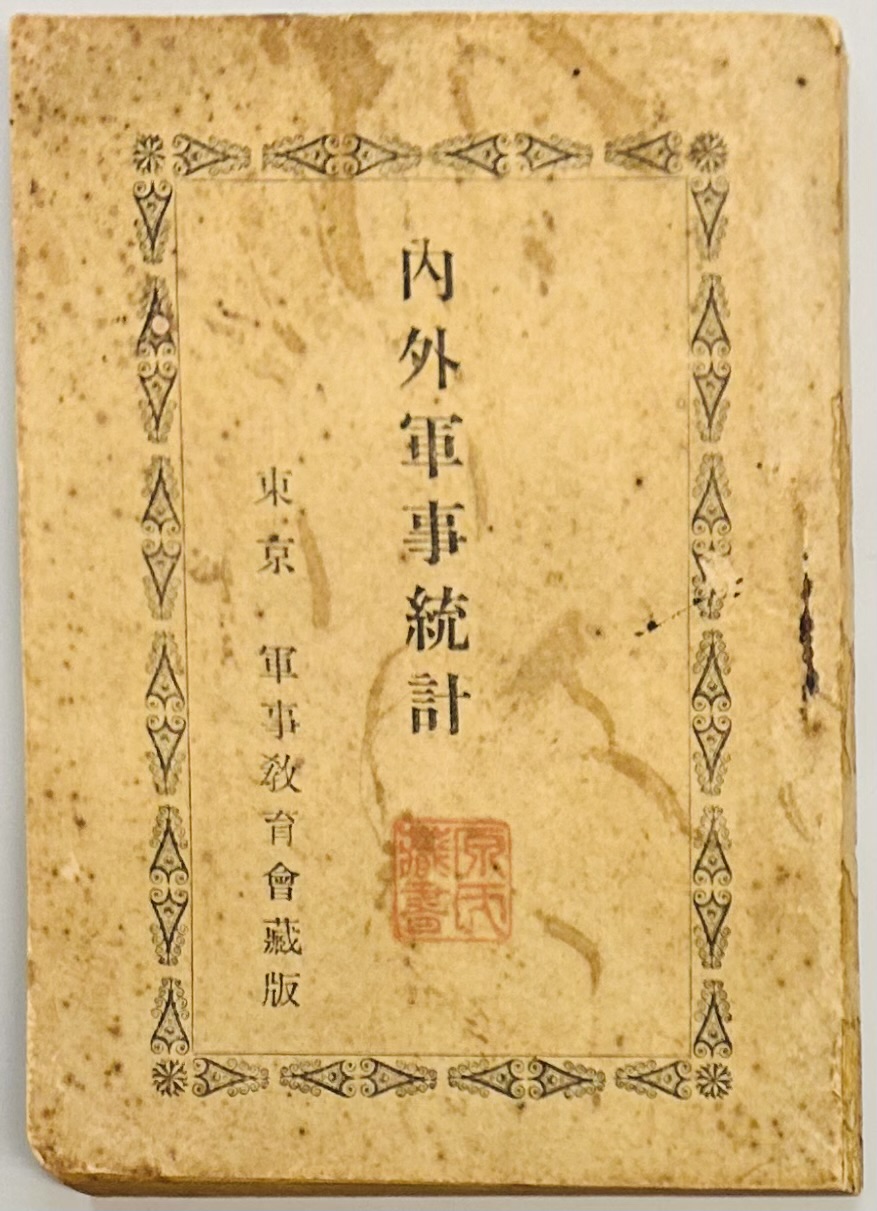 内外軍事統計
東京 軍事教育會藏版
原氏
藏書